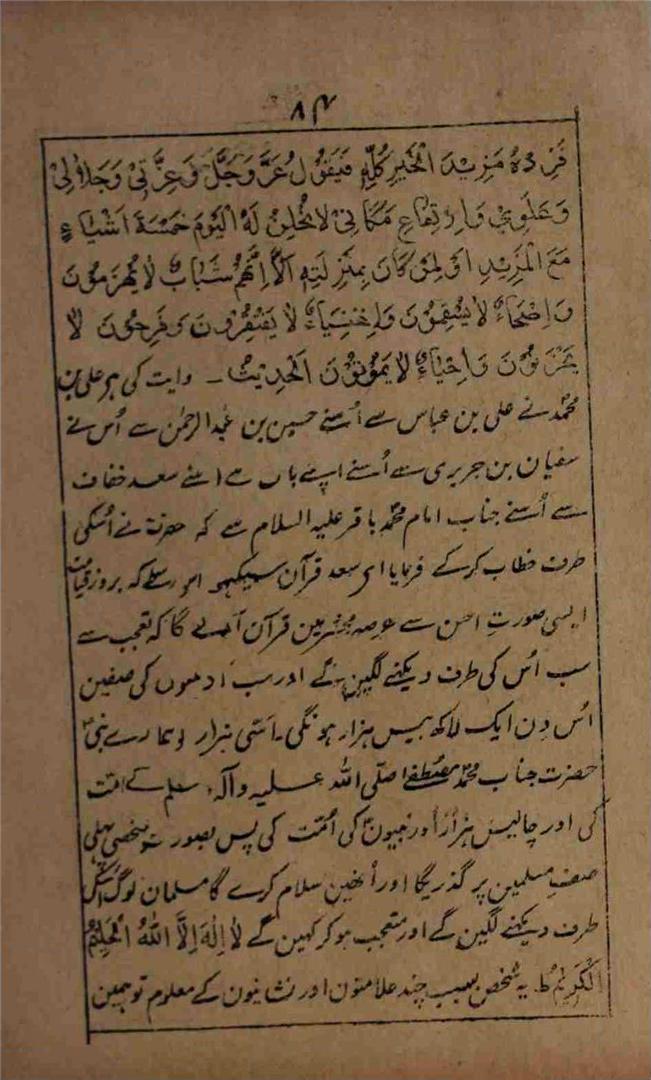 ۸۴
فَزِدْهُ مَزِيْدَ الْخَيْرِ كُلِّهٖ فَيَقُوْلُ عَزَّ وَجَلَّ وَعِزَّتِيْ وَجَلَالِيْ
وَعَلُوِّيْ وَارْتِفَاعِ مَكَانِيْ لَاُنْحِلَنَّ لَهُ الْيَوْمَ خَمْسَةَ اَشْيَاءٍ
مَعَ الْمَزِيْدِ اَوْ لِمَنْ كَانَ بِمَنْزِلَتِهٖ اَلَا اِنَّهُمْ شَبَابٌ لَا يَهْرَمُوْنَ
وَاَصِحَّاءُ لَا يَسْقَمُوْنَ وَاَغْنِيَاءُ لَا يَفْتَقِرُوْنَ وَفَرِحُوْنَ لَا
يَحْزَنُوْنَ وَاَحْيَاءُ لَا يَمُوْتُوْنَ الْحَدِيْثُ ۔ روایت کی ہے علی بن
محمدؐ نے علی بن عباس سے اُسنے حسین بن عبدالرحمٰن سے اُس نے
سفیان بن جریری سے اُسنے اپنے باپ سے اسنے سعد خفاف
سے اُسنے جناب امام محمدؐ باقر علیہ السلام سے کہ حضرتؑ نے اُسکی
طرف خطاب کرکے فرمایا ای سعد قرآن سیکہو اس واسطے کہ بروز قیامت
ایسی صورتِ احسن سے عرصہ محشر مین قرآن آئے گا کہ تعجب سے
سب اُس کی طرف دیکہنے لگین گے اور سب آدمیوں کی صفین
اُس دِن ایک لاکھ بیس ہزار ہونگی۔ اَسّی ہزار ہمارے نبیؐ
حضرت جناب محمدؐ مصطفےٰ اصلّی اللہ علیہ وآلہ وسلم کے امّت
کی اور چالیس ہزار اور نبیونؑ کی اُمّت کی پس بصورت شخصی پہلی
صفِ مسلمین پر گذریگا اور اُنھین سلام کرے گا مسلمان لوگ اسکی
طرف دیکہنے لگین گے اور متعجب ہوکر کہین گے لَا اِلٰهَ اِلَّا اللهُ الْحَلِيْمُ
الْكَرِيْمُ ط یہ شخص بسبب چند علامتون اور نشانیون کے معلوم تو ہمین